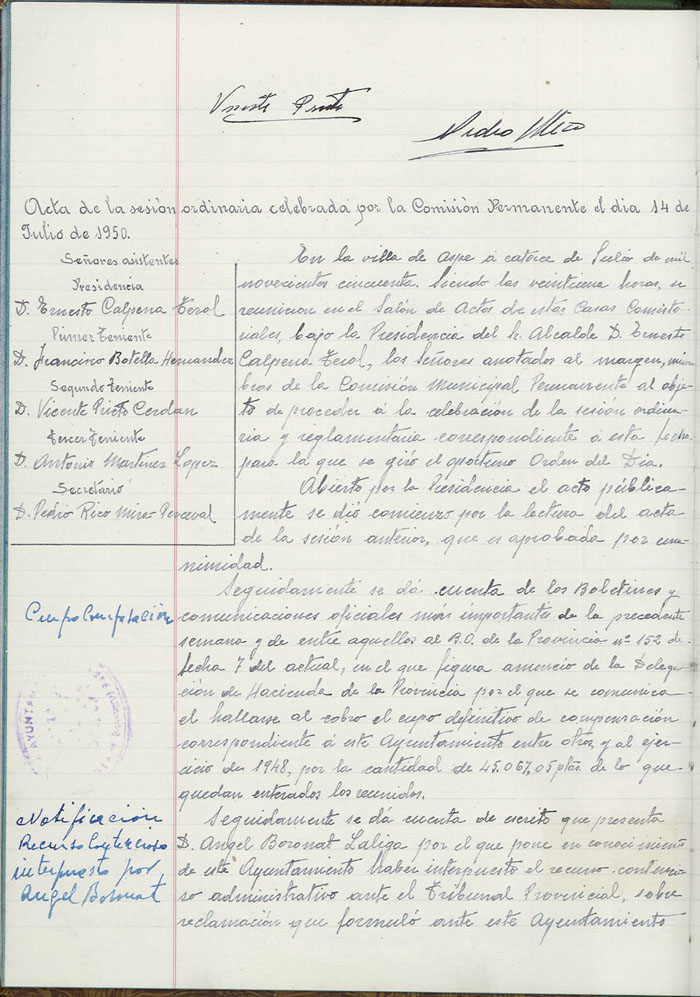 Vicente Prieto
Pedro Rico
Acta de la sesión ordinaria celebrada por la Comisión Permanente el dia 14 de
Julio de 1950.
Señores asistentes
Presidencia
D. Ernesto Calpena Teral
Primer Teniente
D. Francisco Botella Hernandez
Segundo Teniente
D. Vicente Prieto Cerdan
Tercer Teniente
D. Antonio Martinez Lopez
Secretario
D. Pedro Rico Miro Perceval
En la villa de Aspe á catorce de Julio de mil
novecientos cincuenta. Siendo las veintiuna horas, se
reunieron en el Salón de Actos de estas Casas Consisto-
riales, bajo la Presidencia del Sr. Alcalde D. Ernesto
Calpena Teral, los Señores anotados al margen, miem-
bros de la Comisión Municipal Permanente al obje-
to de proceder á la celebración de la sesión ordina-
ria y reglamentaria correspondiente á esta fecha
para la que se giró el oportuno Orden del Dia.
Abierto por la Presidencia el acto pública-
mente se dió comienzo por la lectura del acta
de la sesión anterior, que es aprobada por una-
nimidad.
Cupo Compensación
Seguidamente se dá cuenta de los Boletines y
comunicaciones oficiales más importantes de la precedente
semana y de entre aquellos al B.O. de la Provincia nº 152 de
fecha 7 del actual, en el que figura anuncio de la Delega-
ción de Hacienda de la Provincia por el que se comunica
el hallarse al cobro el cupo definitivo de compensación
correspondiente á este Ayuntamiento entre otros, y al ejer-
cicio de 1948, por la cantidad de 45.067,05 ptas. de lo que
quedan enterados los reunidos.
AYUNTA
Notificación
Recurso Contencioso
interpuesto por
Angel Boronat
Seguidamente se dá cuenta de escrito que presenta
D. Angel Boronat Laliga por el que pone en conocimiento
de este Ayuntamiento haber interpuesto el recurso contencio-
so administrativo ante el Tribunal Provincial, sobre
reclamación que formuló ante este Ayuntamiento